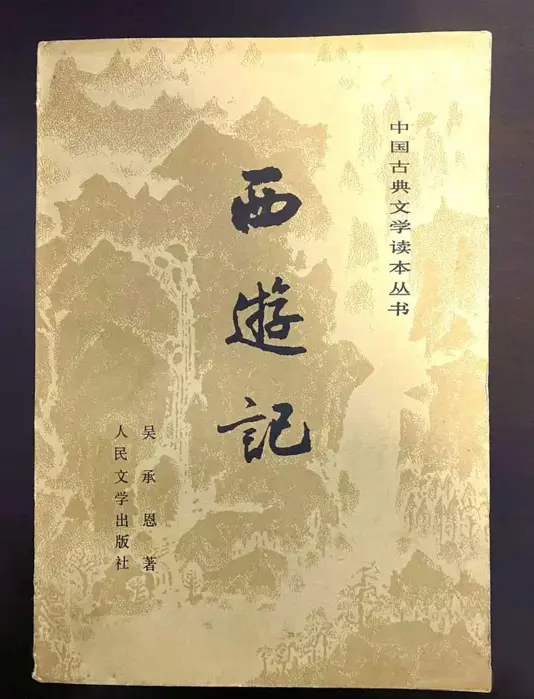 中国古典文学读本丛书
西遊記
吴承恩著
人民文学出版社